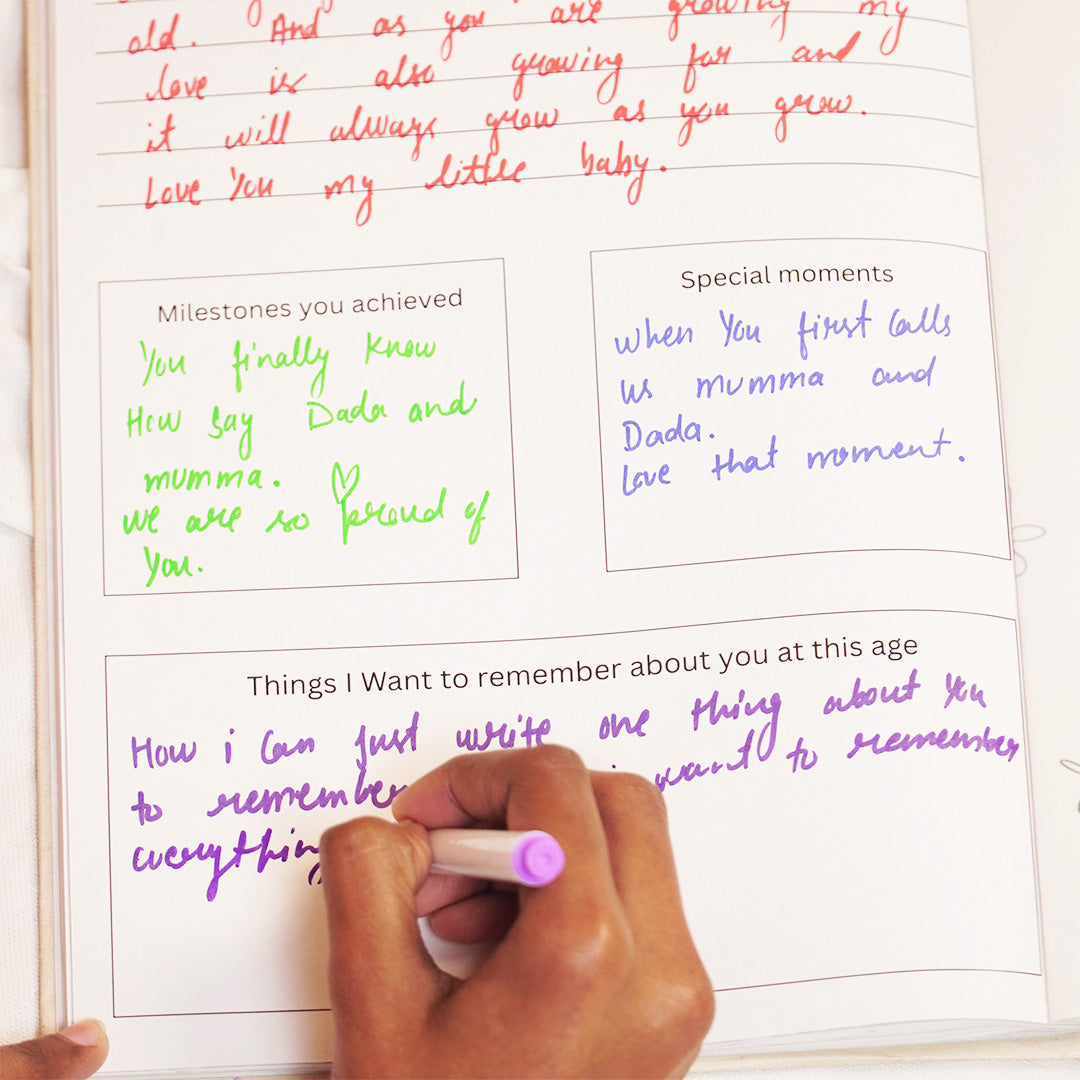 old. And as you are growing my
love is also growing for and
it will always grow as you grow.
Love You my little baby.
Milestones you achieved
You finally know
How say Dada and
mumma.
we are so proud of
You.
Special moments
when You first Calls
us mumma and
Dada.
Love that moment.
Things I Want to remember about you at this age
How i Can just write one thing about You
to remember want to remember
everything